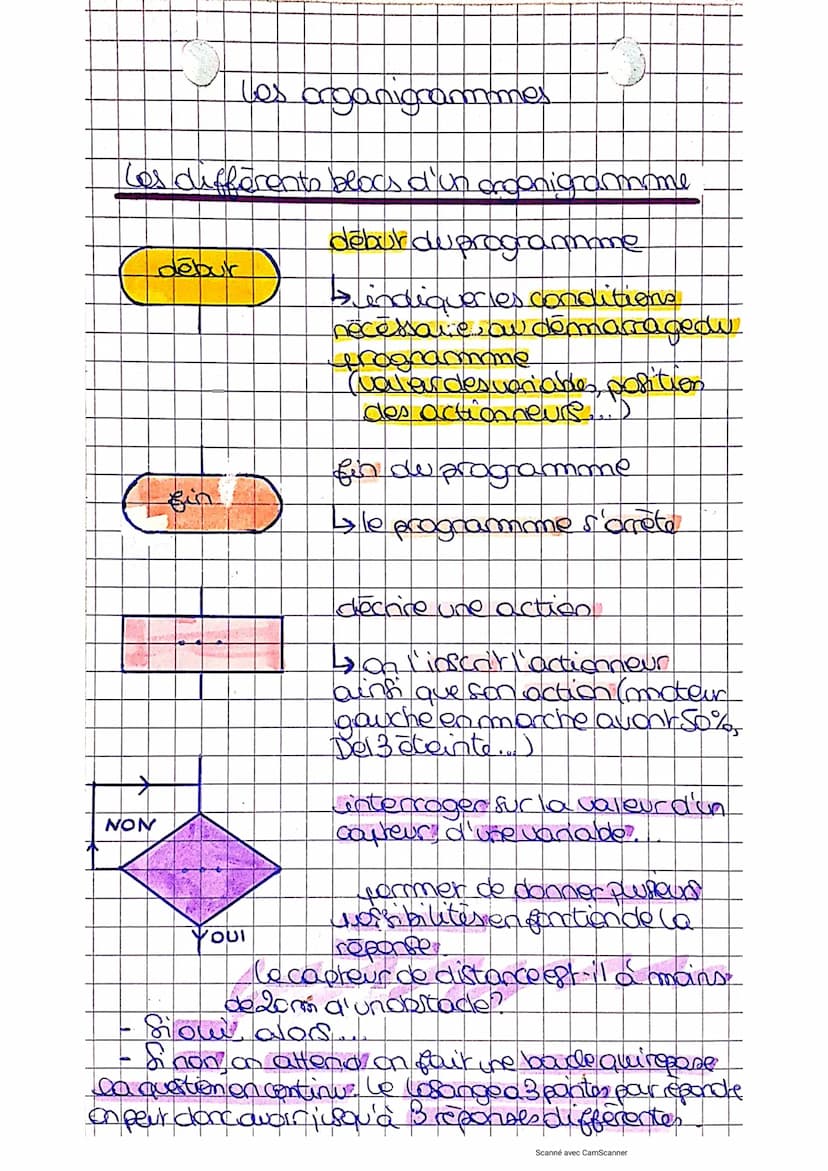 Les organigrammes
Les différents blocs d'un organigramme
début
début du programme
↳ indiquer les conditions
nécessaires au démarrage du
programme
(valeur des variables, position
des actionneurs...)
fin
fin du programme
↳ le programme s'arrête
...
décrire une action
↳ on l'inscrit l'actionneur
ainsi que son action (moteur
gauche en marche avant 50%,
Del 3 éteinte...)
NON
...
OUI
interroger sur la valeur d'un
capteur, d'une variable...
de donner plusieurs
possibilités en fonction de la
réponse.
Le capteur de distance est-il à moins
de 2cm d'un obstacle?
- Si oui, alors...
- Si non, on attend on fait une boucle qui repose
la question en continu. Le losange a 3 pointes par réponde
on peut donc avoir jusqu'à 3 réponses différentes.
Scanné avec CamScanner